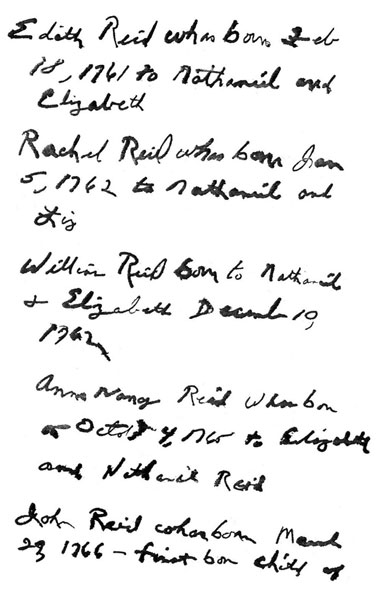 Edith Reid whas born Feb
18, 1761 to Nathaniel and
Elizabeth
Rachel Reid whas born Jan
5, 1762 to Nathaniel and
Liz
William Reid born to Nathaniel
& Elizabeth December 19
1762
Anna Nancy Reid whas born
on October 4, 1765 to Elizabeth
and Nathaniel Reid
John Reid whas born March
29 1766 - first born child of